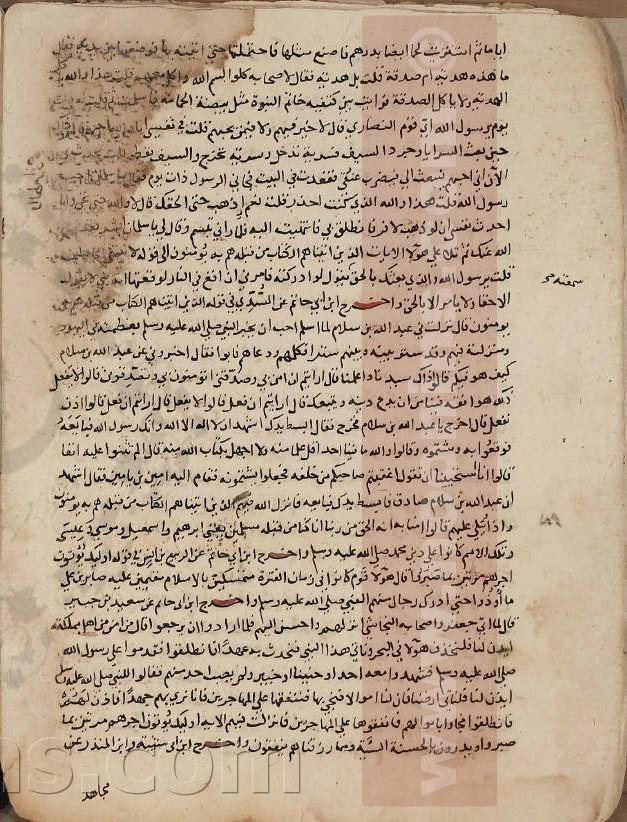 اياما ثم اشتريت لحما ايضا بدرهم فاصنع مثلها فاحتملتها حتى اتيته بها فوضعتها بين يديه فقال
ما هذه هدية ام صدقة قلت بل هدية فقال لاصحابه كلوا بسم الله واكل معهم قلت هذا والله
الهدية ولا ياكل الصدقة فرايت بين كتفيه خاتم النبوة مثل بيضة الحمامة فاسلمت
يوم يرسول الله اي قوم النصارى قال لا خير فيهم ولا فيمن يحبهم قلت في نفسي
حين بعث السرايا وجرد السيف فسرية تدخل وسرية تخرج والسيف يقطر
الآن اني احبهم فيبعث الي فيضرب عنقي فقعدت في البيت فجاني الرسول ذات يوم فقال
رسول الله قلت هذا والله الذي كنت احذر قلت نعم اذهب حتى الحقك قال لا والله حتى تجي وانا
احدث نفسي ان لو ذهب لافر فانطلق بي فانتهيت اليه فلما راني تبسم وقال لي يا سلمان
الله عنك ثم تلا علي هولا الايات الذين اتيناهم الكتاب من قبله هم به يؤمنون الى قوله لا
قلت يرسول الله والذي بعثك بالحق سمعته يقول لو ادركته فامرني ان اقع في النار لوقعتها
الا حقا ولا يامر الا بالحق واخــرج ابن ابي حاتم عن السدي في قوله الذين اتيناهم الكتاب من قبله هم به
يومنون قال نزلت في عبد الله بن سلام لما اسلم احب ان يخبر النبي صلى الله عليه وسلم بعظمته في اليهود
ومنزلته فيهم وقد ستر بينه وبينهم سترا فكلمهم ودعاهم فابوا فقال اخبروني عن عبد الله بن سلام
كيف هو فيكم قالوا ذاك سيدنا واعلمنا قال ارايتم ان امن بي وصدقني اتؤمنون بي وتصدقوني قالوا لا يفعل
ذاك هو افقه فينا من ان يدع دينه ويتبعك قال ارايتم ان فعل قالوا لا يفعل قال ارايتم ان فعل قالوا اذن
نفعل قال اخرج يا عبد الله بن سلام فخرج فقال ابسط يدك اشهد ان لا اله الا الله وانك رسول الله فبايعه
فوقعوا به وشتموه وقالوا والله ما فينا احد اقل علما منه ولا اجهل بكتاب الله منه قال الم تثنوا عليه انفا
قالوا انا استحيينا ان تقول اغتبتم صاحبكم من خلفه فجعلوا يشتمونه فقام اليه امين بن يامين فقال اشهد
ان عبد الله بن سلام صادق فابسط يدك فبايعه فانزل الله فيهم الذين اتيناهم الكتاب من قبله هم به يومنون
واذا يتلى عليهم قالوا امنا به انه الحق من ربنا انا كنا من قبله مسلمين يعني ابرهيم واسمعيل وموسى وعيسى
وتلك الامم كانوا على دين محمد صلى الله عليه وسلم واخــرج ابن ابي حاتم عن الربيع بن انس في قوله اوليك يوتون
اجرهم مرتين بما صبروا قال هولا قوم كانوا في زمان الفترة متمسكين بالاسلام مقيمين عليه صابرين على
ما اوذوا حتى ادرك رجال منهم النبي صلى الله عليه وسلم واخــرج ابن ابي حاتم عن سعيد بن جبير
قال لما اتى جعفر واصحابه النجاشي انزلهم واحسن اليهم فلما ارادوا ان يرجعوا قال من امن من اهل مملكته
ايذن لنا فلنحذف هولا في البحر وناتي هذا النبي فنحدث به عهدا فانطلقوا فقدموا على رسول الله
صلى الله عليه وسلم فشهدوا معه احد وحنينا وخيبر ولم يصب احد منهم فقالوا للنبي صلى الله عليه وسلم
ايذن لنا فلناتي ارضنا فان لنا اموالا فنجي بها فننفقها على المهاجرين فانا نرى بهم جهدا فاذن لهم
فانطلقوا فجاوا باموالهم فانفقوها على المهاجرين فانزلت فيهم الاية اوليك يوتون اجرهم مرتين بما
صبروا ويدرون بالحسنة السيئة ومما رزقناهم ينفقون واخــرج ابن ابي شيبة وابن المنذر عن
مجاهد
سمعته
ns.com